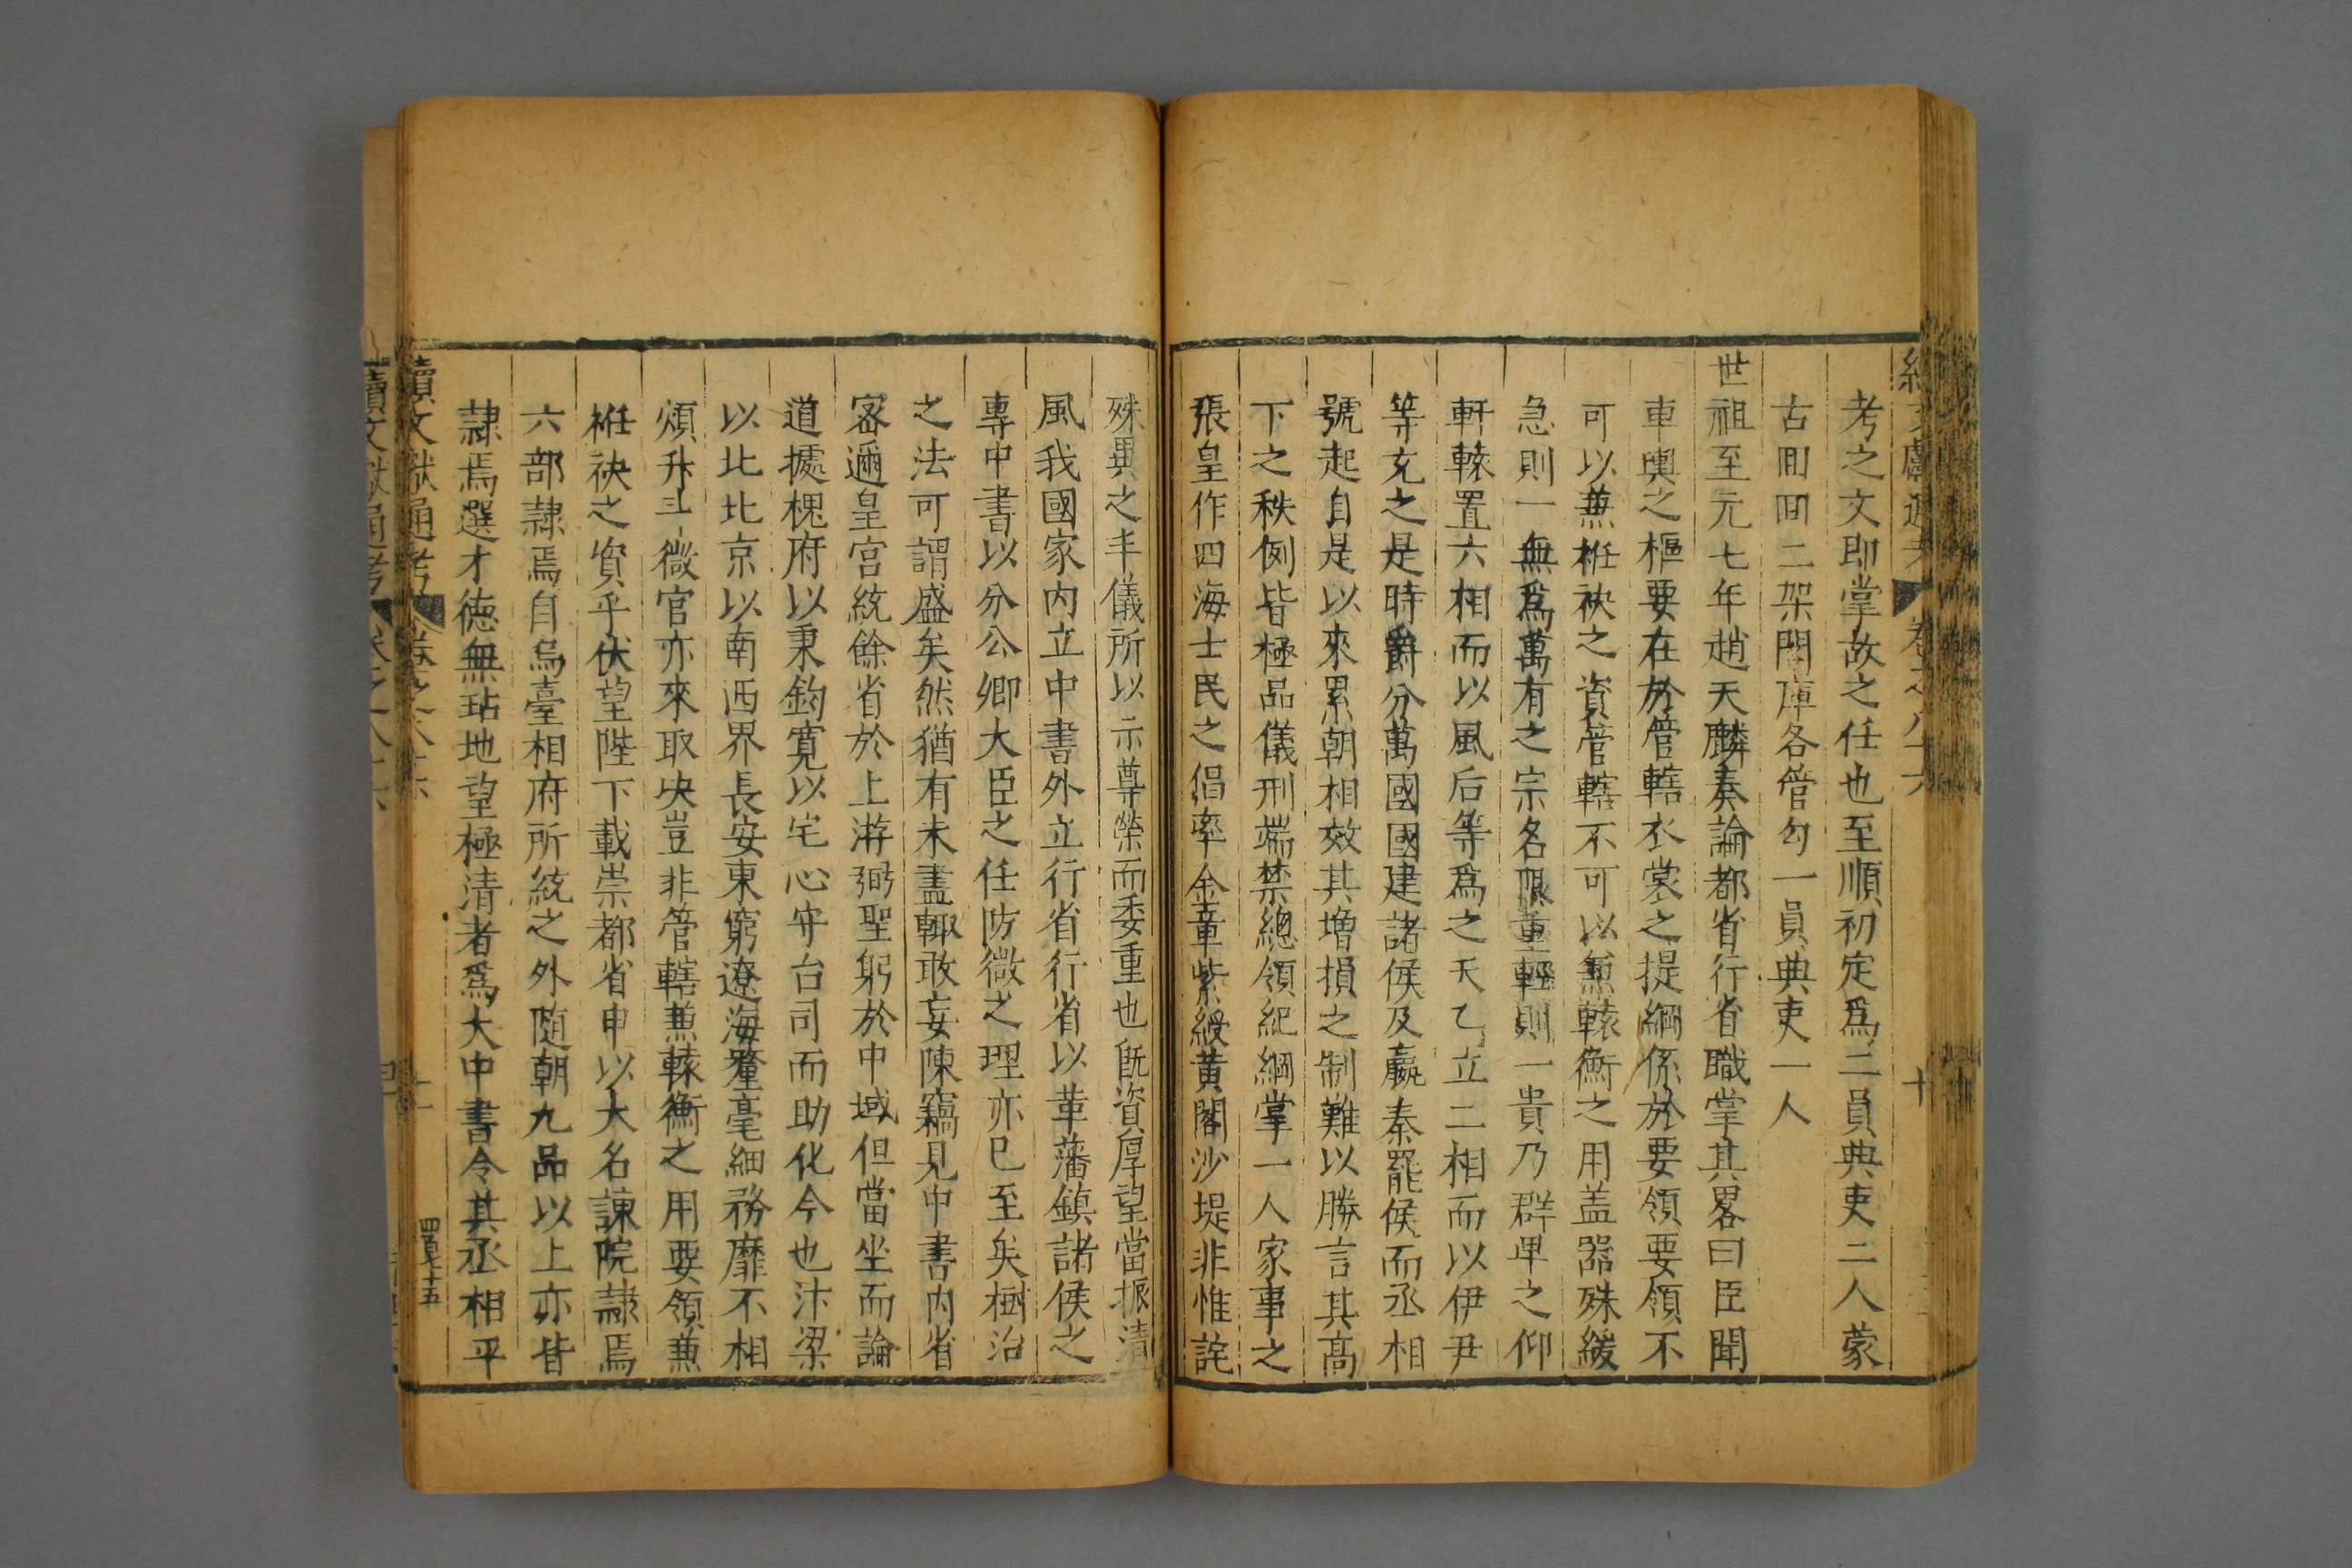 續文獻通考 卷之八十六 十
考之文即掌故之任也至順初定爲二員典吏二人蒙
古囬囬二架閣庫各管勾一員典吏一人
世祖至元七年趙天麟奏論都省行省職掌其畧曰臣聞
車輿之樞要在於管轄衣裳之提綱係於要領要領不
可以兼袵袂之資管轄不可以兼轅衡之用盖器殊緩
急則一無爲萬有之宗名限重輕則一貴乃群卑之仰
軒轅置六相而以風后等爲之天乙立二相而以伊尹
等充之是時爵分萬國國建諸侯及嬴秦罷侯而丞相
號起自是以來累朝相效其増損之制難以勝言其髙
下之秩例皆極品儀刑端禁總領紀綱掌一人家事之
張皇作四海士民之倡率金章紫綬黄閣沙堤非惟詫
殊異之丰儀所以示尊榮而委重也旣資厚望當振清
風我國家内立中書外立行省行省以革藩鎮諸侯之
專中書以分公卿大臣之任防微之理亦已至矣樹治
之法可謂盛矣然猶有未盡輙敢妄陳竊見中書内省
密邇皇宫統餘省於上游弼聖躬於中域但當坐而論
道據槐府以秉鈞寛以宅心守台司而助化今也汴梁
以北北京以南西界長安東窮遼海釐毫細務靡不相
煩升斗微官亦來取决豈非管轄兼轅衡之用要領兼
袵袂之資乎伏望陛下載崇都省申以大名諫院隷焉
六部隷焉自烏臺相府所統之外隨朝九品以上亦皆
隷焉選才德無玷地望極清者爲大中書令其丞相平
續文獻通考 卷之八十六
續文獻通考 卷之八十六